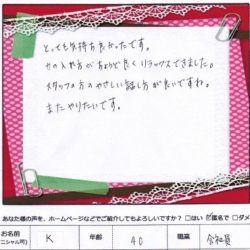 とっても気持ち良かったです。
力の入れ方がちょうど良くリラックスできました。
スタッフの方のやさしい話し方が良いですね。
またやりたいです。
あなた様の声を、ホームページなどでご紹介してもよろしいですか？ □はい ☑匿名で □ダメ
お名前
(イニシャル可)
K
年齢
40
職業
会社員